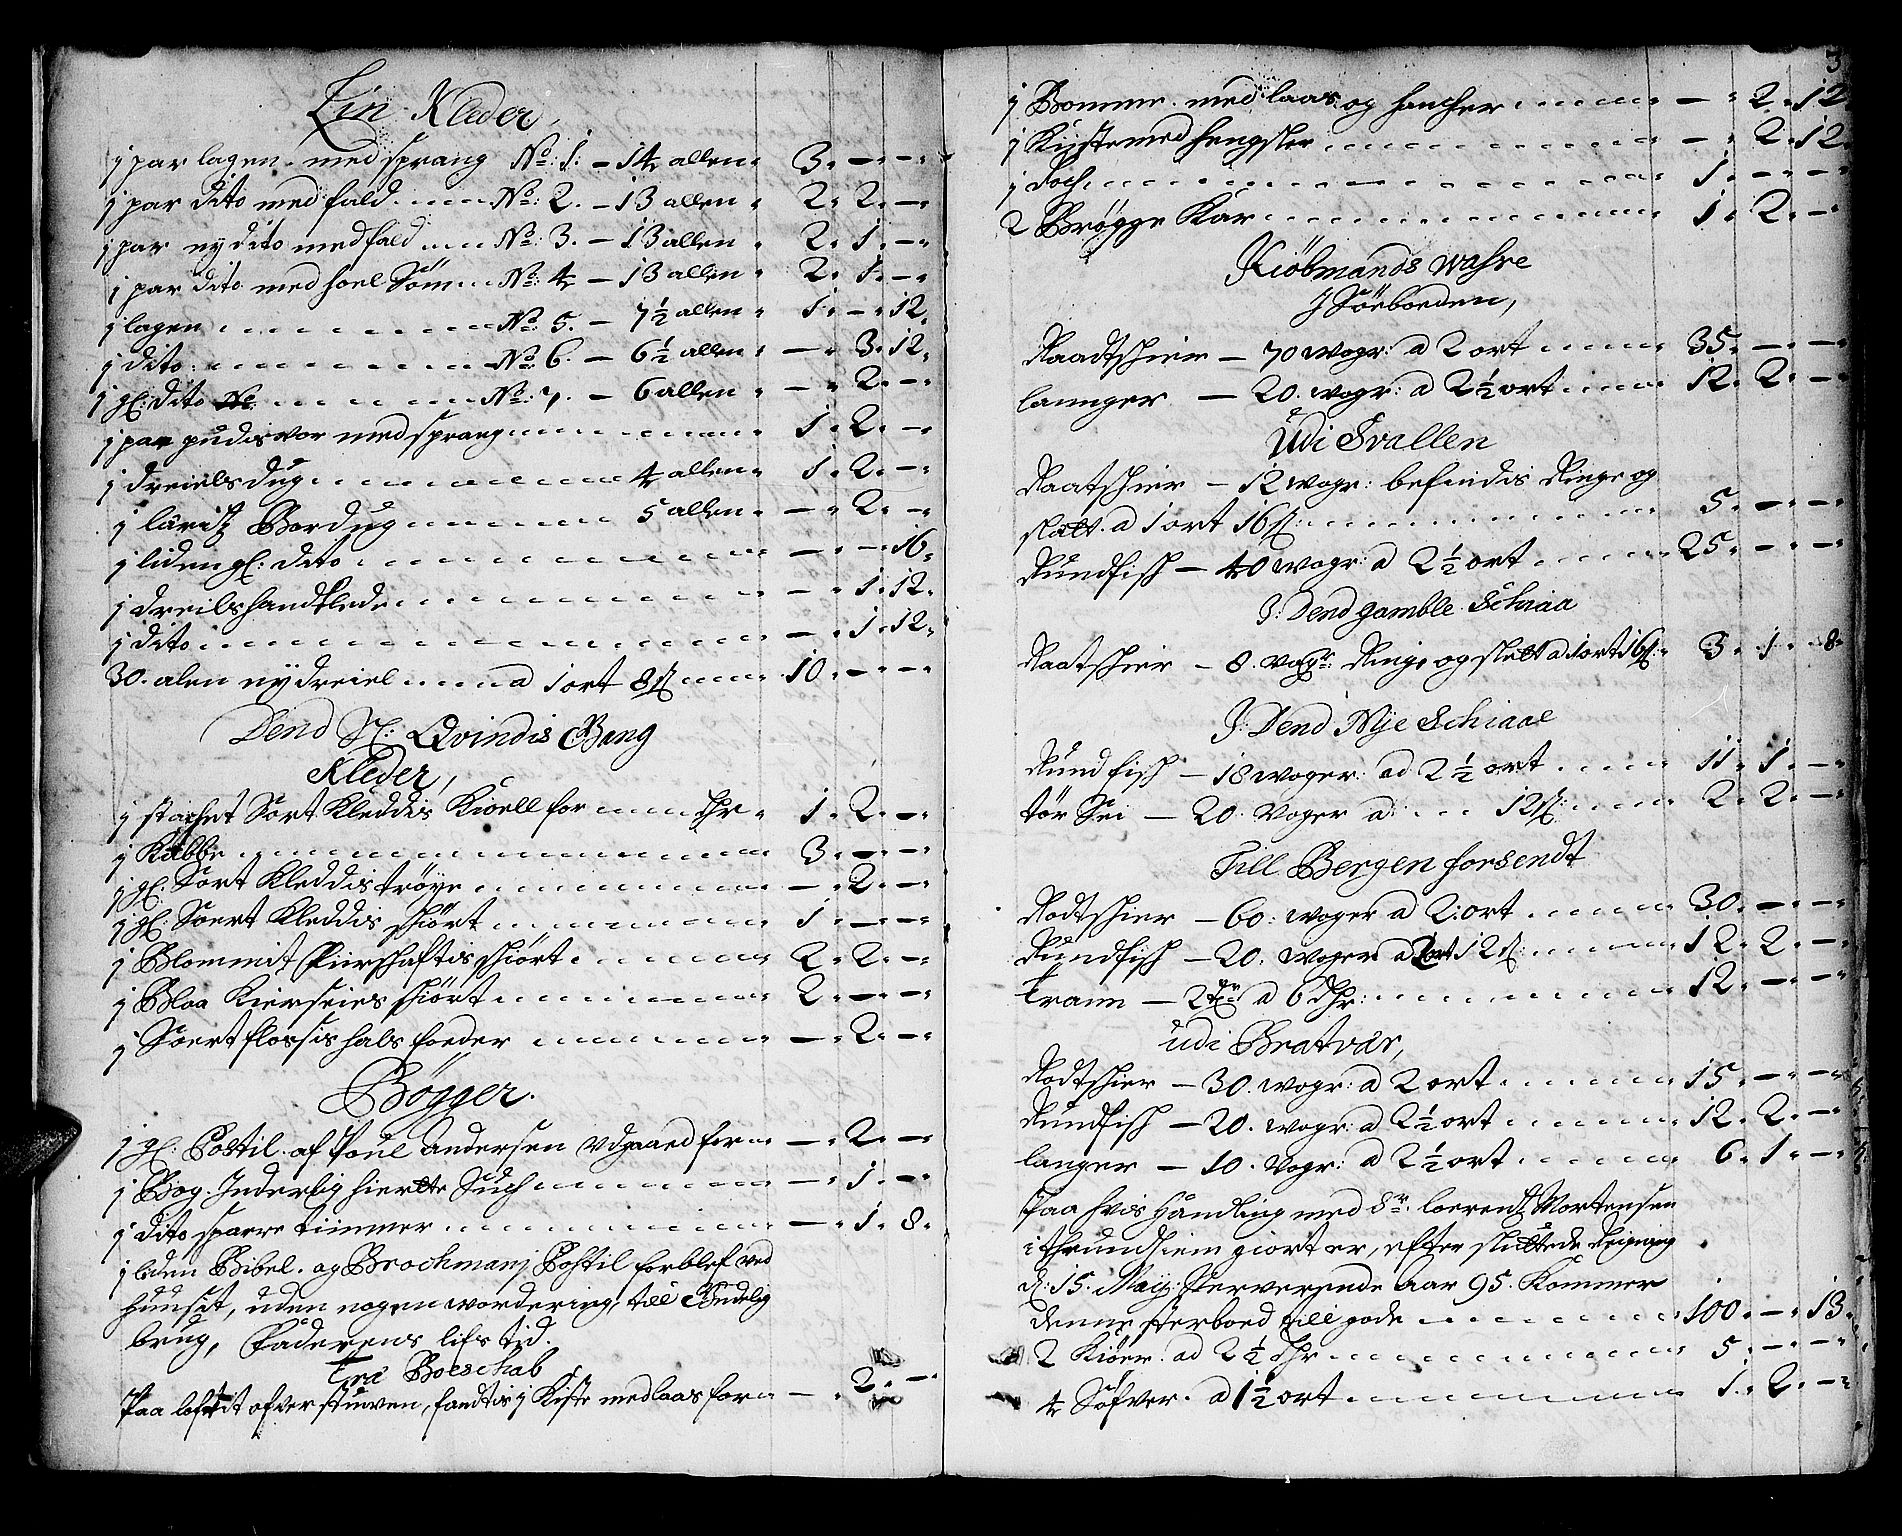 Lin Kleder,
1 par lagen med sprang No: 1: – 14 allen 3 – –
1 par dito med fald No: 2. – 13 allen 2. 2. –
1 par ny dito med fald No: 3. – 13 allen 2. 1. –
1 par dito med hoel Söm No: 4 – 13 allen 2. 1. –
1 lagen No: 5. – 7½ allen 1. – 12.
1 dito No: 6. – 6½ allen – 3. 12.
1 gl: dito No: 7. – 6 allen – 2. –
1 par pudis vor med sprang 1. 2. –
1 dreiels dug 4 allen 1. 2. –
1 läritz Bordug 5 allen – 2. –
1 liden gl: dito – – 16.
1 dreils handklede – 1. 12.
1 dito – 1. 12.
30. alen ny dreiel a 1 ort 8 s 10. – –
Dend Sl: Qvindis Gang
Kleder,
1 stachet Sort Kleddis Kioell for dhr 1. 2. –
1 Kabbe 3. – –
1 gl: Sort Kleddis trøye – 2. –
1 gl: Soert Kleddis skiört 1. – –
1 Blommit Fierskaftis skiört 2. 2. –
1 Blaa Kierseies skiört 2. – –
1 Soert flossis hals foeder – 2. –
Bøgger.
1 gl: Postil af Poul Andersen Udgaard for – 2. –
1 Bog. Inderlig hiertte Such – 1. –
1 dito sparre tiimmer – 1. 8.
1 liden Bibel. og Brochmanj Postil forblef ved
huuset, uden nogen wordering, till Gudelig
brug, Faderens lifs tid.
Træ Boeschab
Paa loftit ofver stuwen, fandtis 1 Kiste med laas for – 2. –
1 Bomme med laas og hancher – 2. 12
1 Kiste med hengsler – 2. 12.
1 1. – –
2 Brøgge Kar 1. 2. –
Kiöbmands wahre
I Söeboeden,
Raadtskier – 70 wogr: a 2 ort 35. – –
lannger – 20. wogr: a 2½ ort 12. 2. –
Udi Svallen
Raatskier – 12 wogr: befindis Ringe og
slätt. a 1 ort 16 s: 5. – –
Rundfisk – 40 wogr: a 2½ ort 25. – –
I: Dend gamble Schiaa
Raatskier – 8. vogr: Ringe og slett a 1 ort 16 s: 3. 1. 8.
I: Dend Nye Schiaae
Rundfisk – 18 woger: ad 2½ ort 11. 1. –
tör Sei – 20. Voger a: 12 s: 2. 2. –
Till Bergen forsendt
Rodtskier – 60: woger a 2: ort 30. – –
Rundfisk – 20. woger a 2 ort 12 s: 12. 2. –
Trann – 2 tdr a 6 dhr: 12. – –
udi Bratvär,
Rodtskier – 30. wogr: a 2 ort 15. – –
Rundfisk – 20. wogr: a 2½ ort 12. 2. –
langer – 10. Vogr: a 2½ ort 6. 1. –
Paa hvis Handling med Sr. loerentz Mortensen
i Thrundhiem giort er, efter sluttede Reigning
d: 15. Maij: Nerverende Aar 95. Kommer
denne sterboed till gode 100. – 13.
2 Kiöer ad 2½ dhr 5. – –
4 Söfver a 1½ ort 1. 2. –